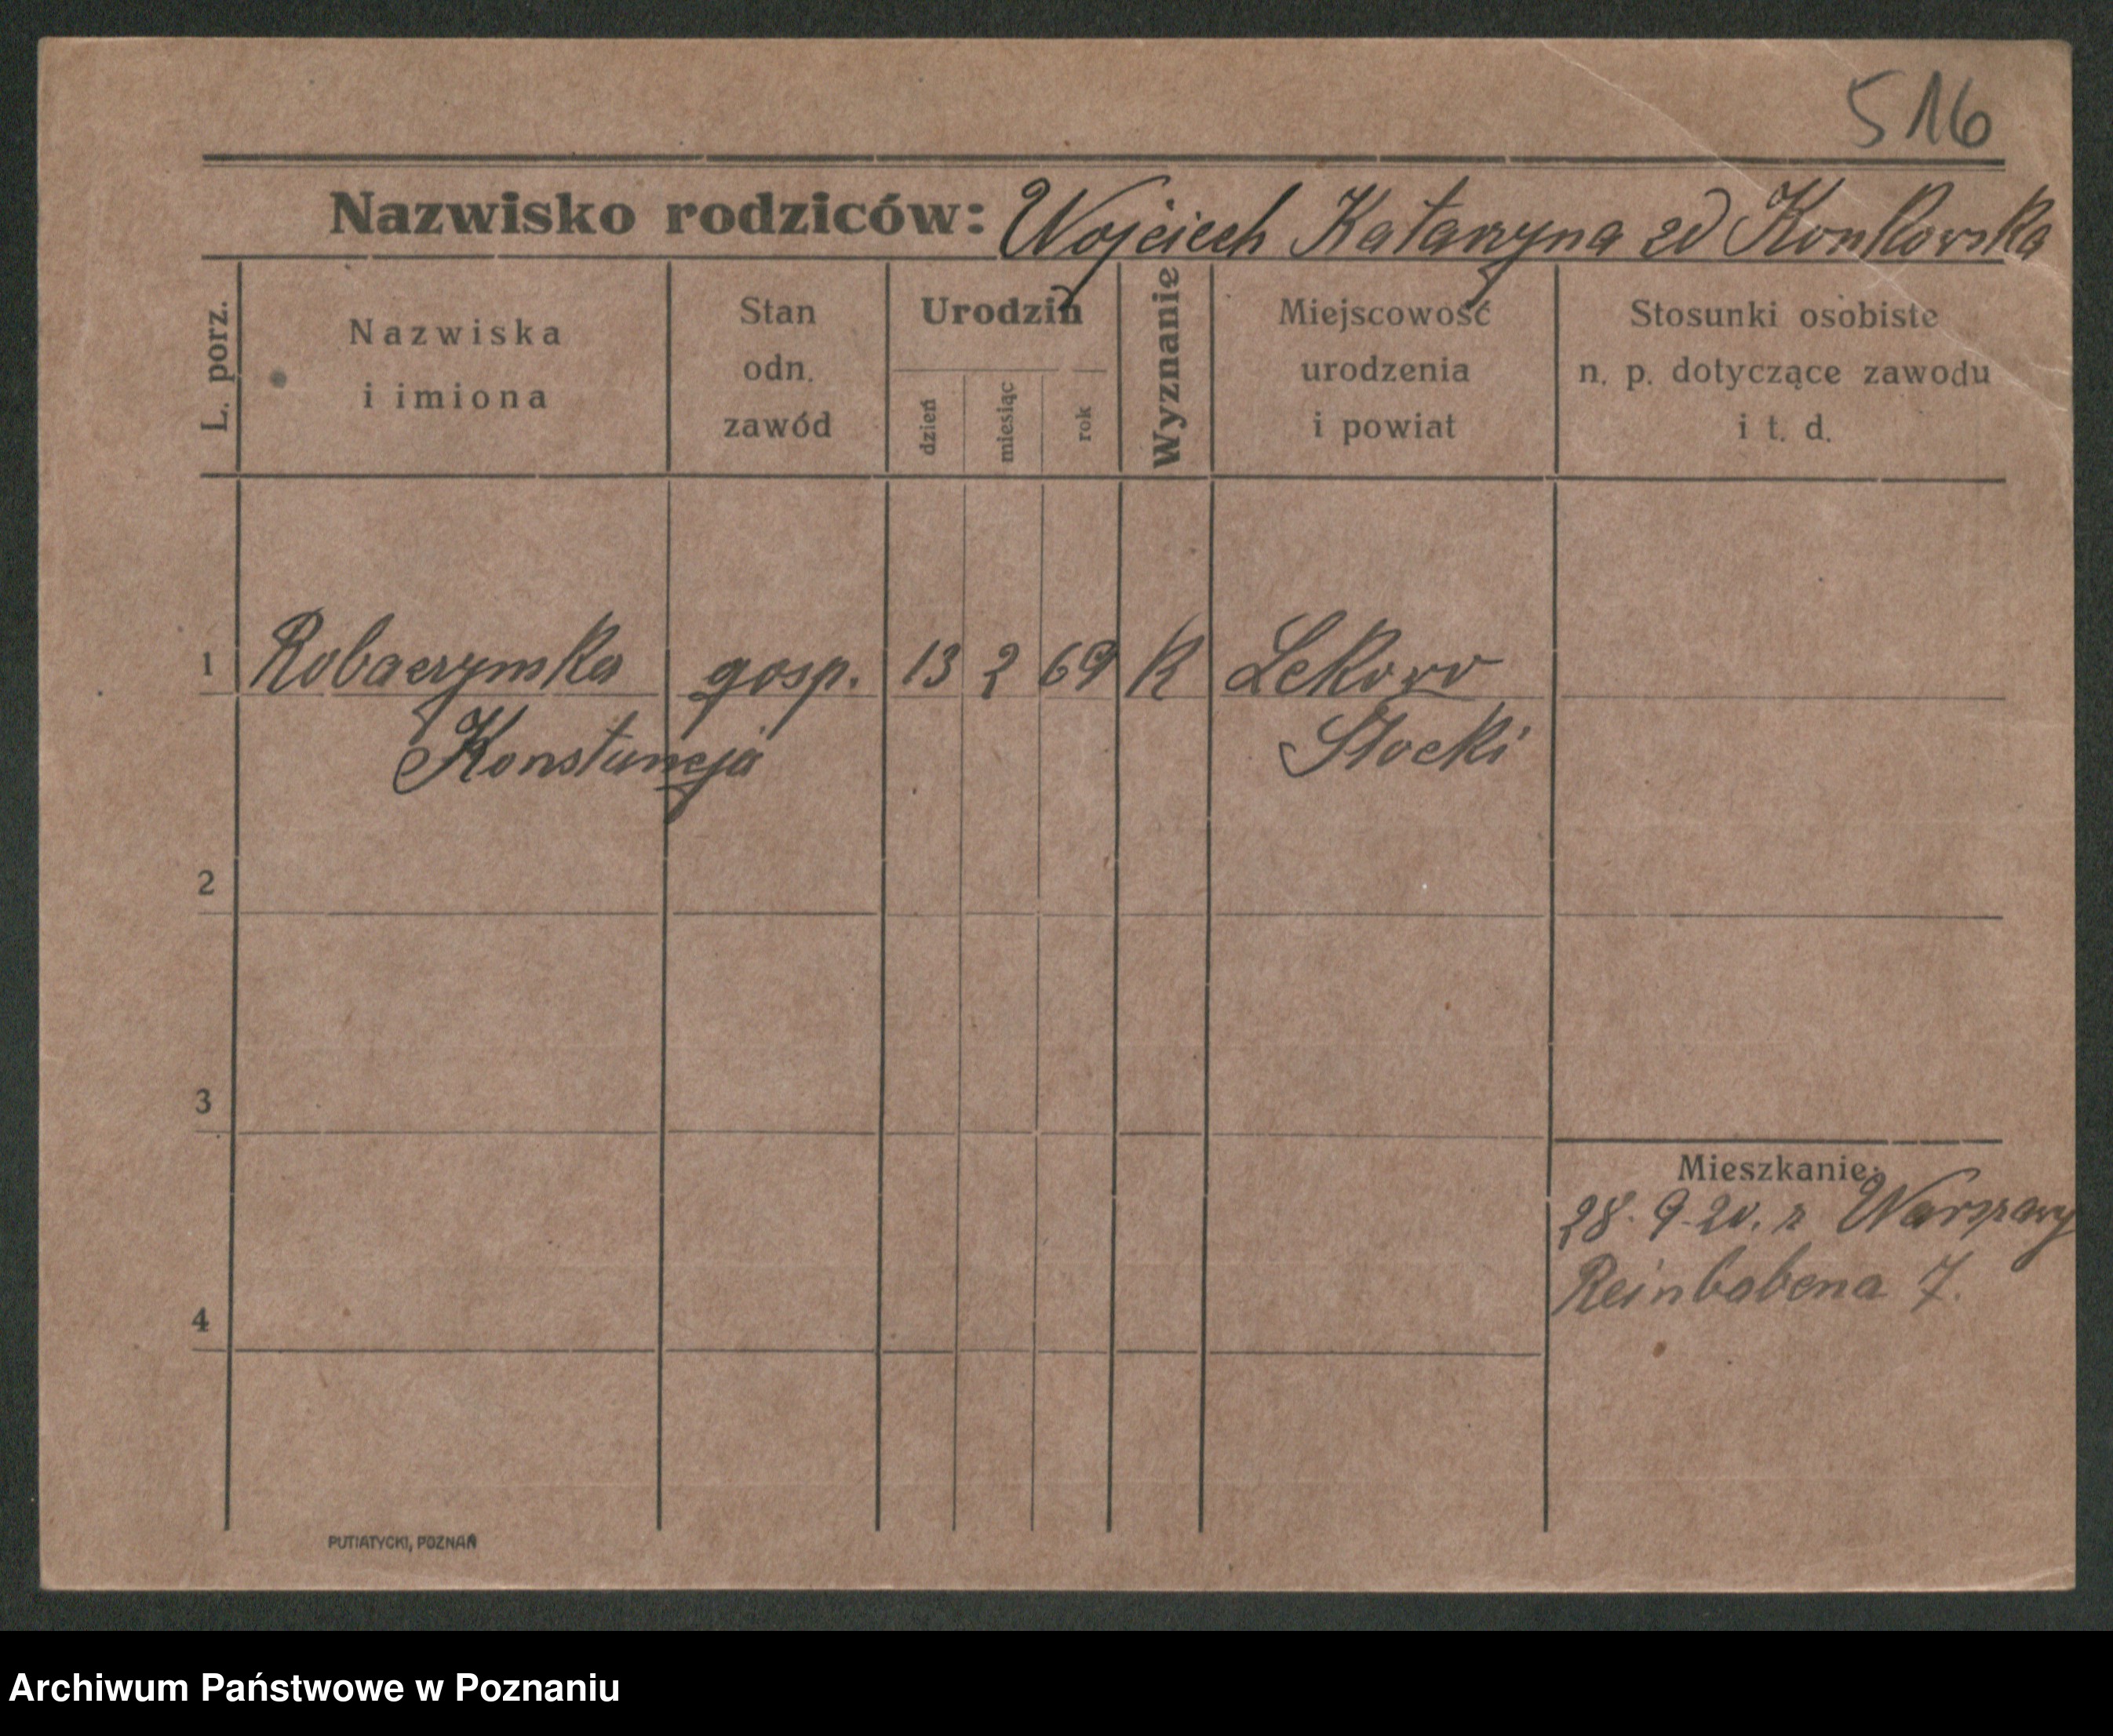 516
Nazwisko rodziców: Wojciech Katarzyna zd Konkowska
L. porz.
Nazwiska
i imiona
Stan
odn.
zawód
Urodzin
dzień
miesiąc
rok
Wyznanie
Miejscowość
urodzenia
i powiat
Stosunki osobiste
n. p. dotyczące zawodu
i t. d.
1 Robaczynska gosp. 13 2 69 K Lekowo
Konstancja Płocki
2
3
Mieszkanie:
28. 9. 20. z Warszawy
Reinbabena 7.
4
PUTIATYCKI, POZNAŃ
Archiwum Państwowe w Poznaniu